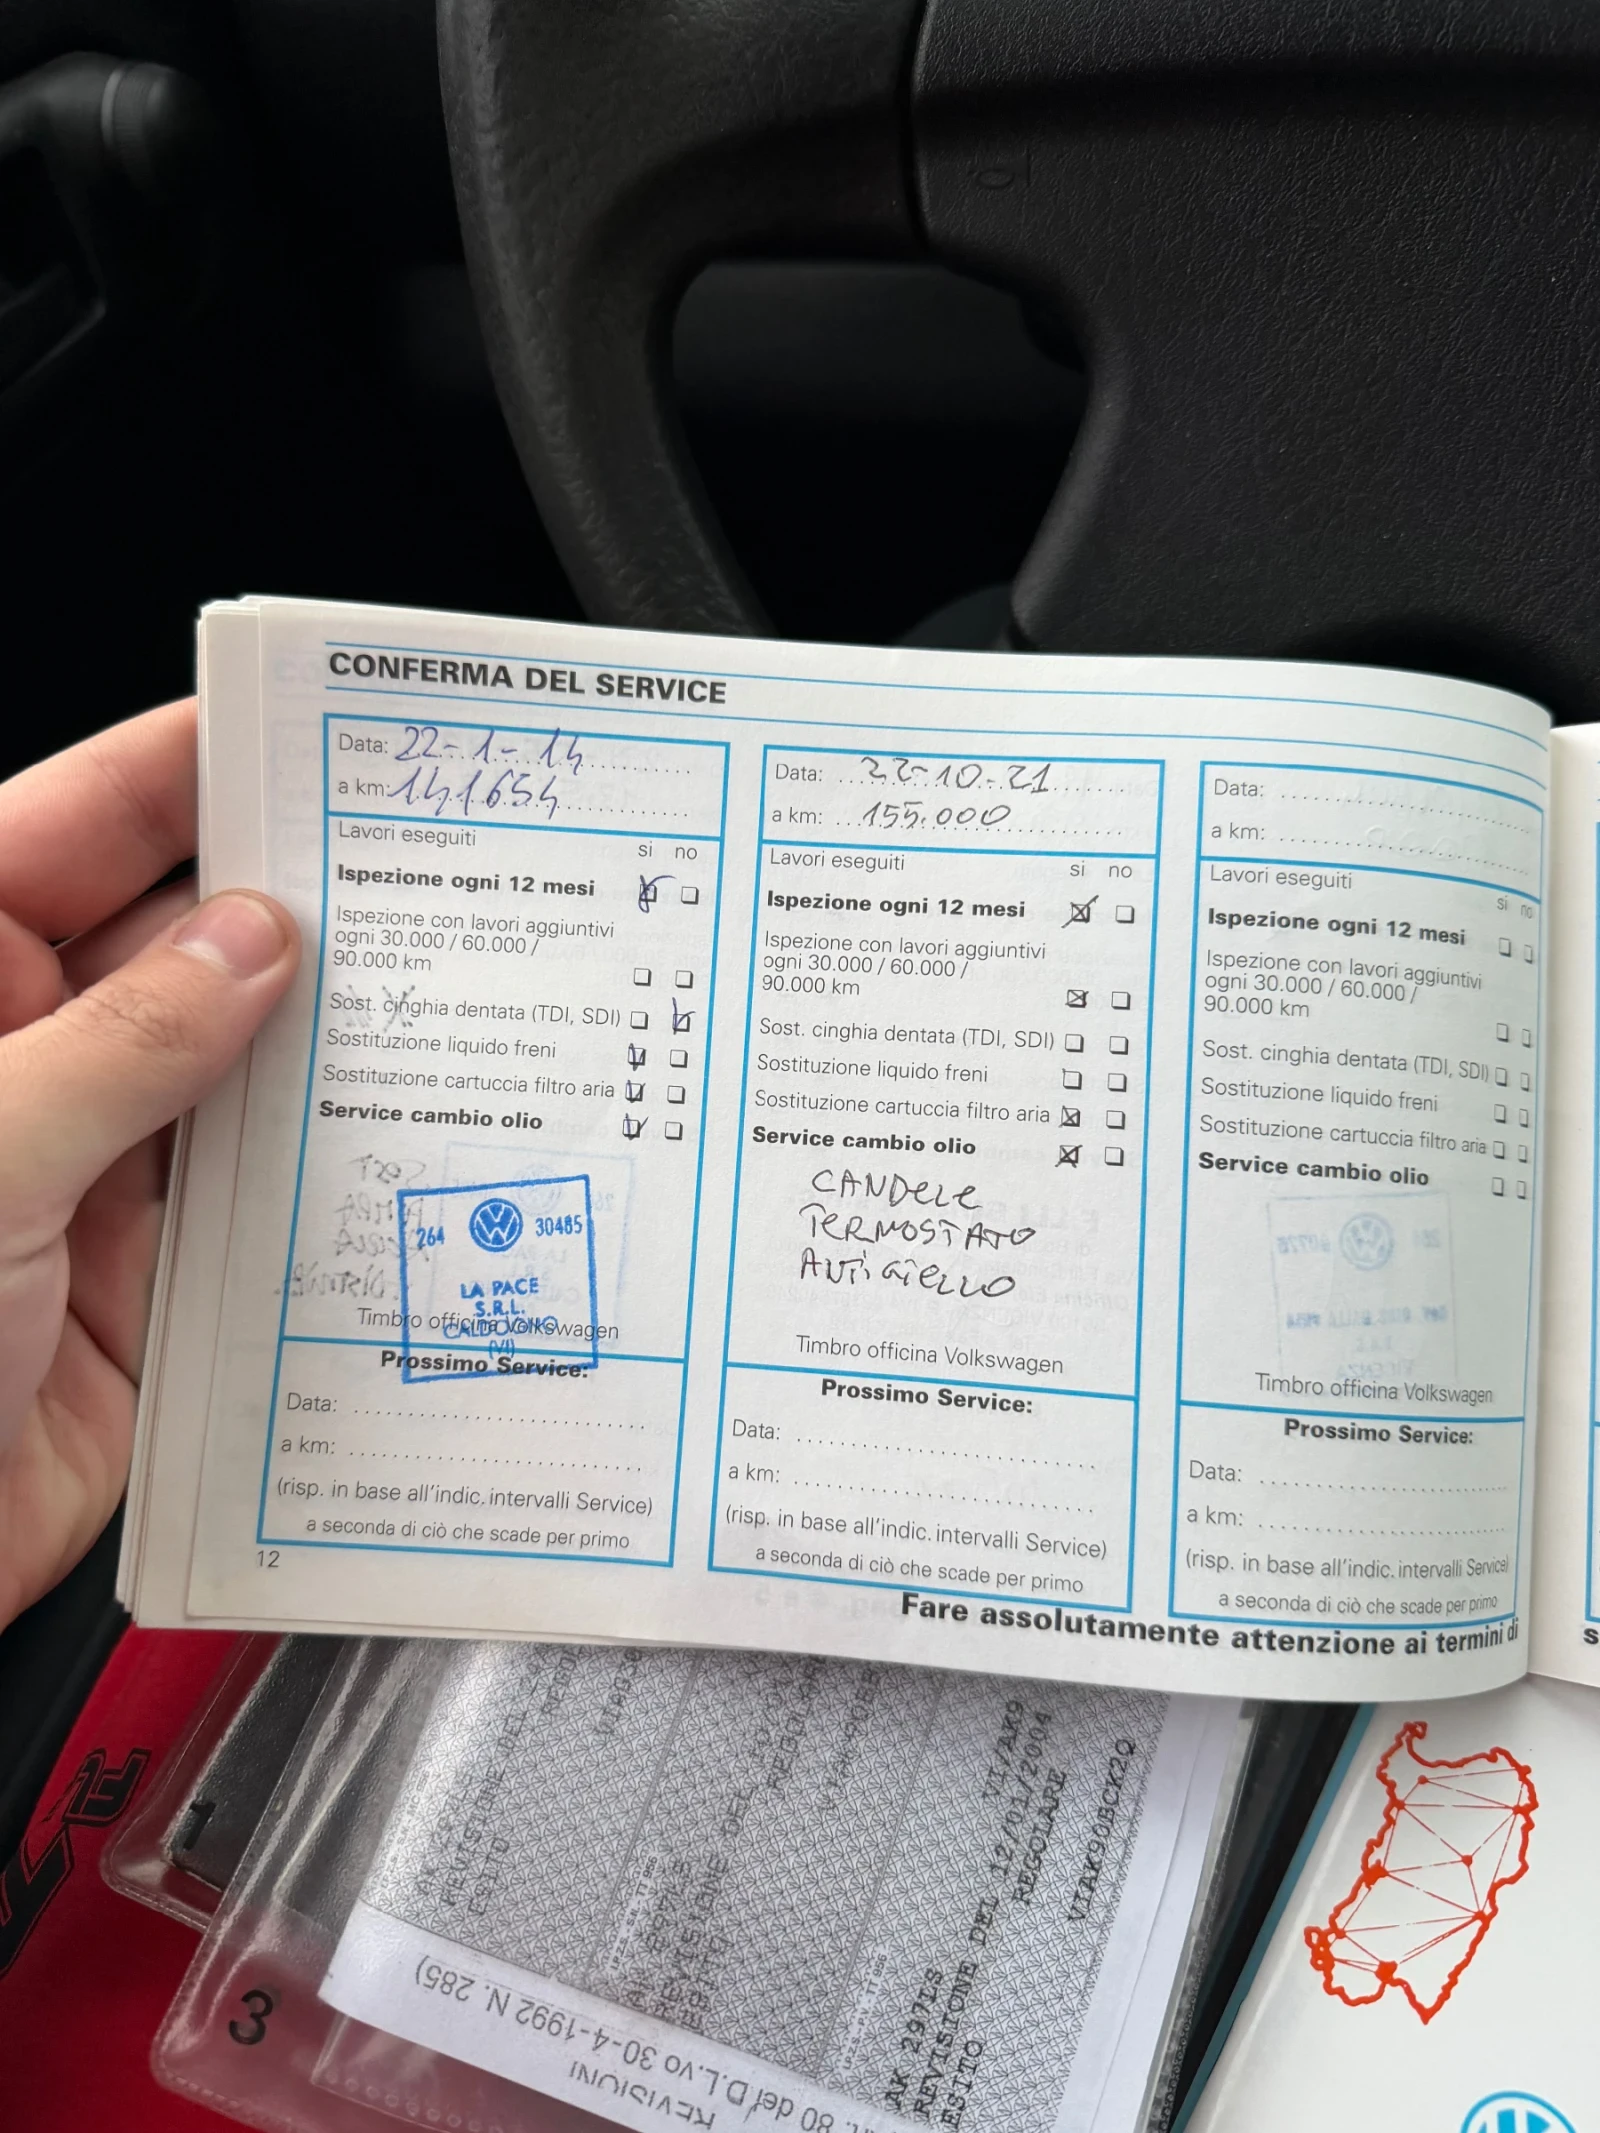 CONFERMA DEL SERVICE
Data: 22-1-14
a km: 141654
Lavori eseguiti
si no
Ispezione ogni 12 mesi
Ispezione con lavori aggiuntivi
ogni 30.000 / 60.000 /
90.000 km
Sost. cinghia dentata (TDI, SDI)
Sostituzione liquido freni
Sostituzione cartuccia filtro aria
Service cambio olio
264 30485
LA PACE
S.R.L.
CALDOGNO
(VI)
Timbro officina Volkswagen
Prossimo Service:
Data:
a km:
(risp. in base all'indic. intervalli Service)
a seconda di ciò che scade per primo
12
Data: 22-10-21
a km: 155.000
Lavori eseguiti
si no
Ispezione ogni 12 mesi
Ispezione con lavori aggiuntivi
ogni 30.000 / 60.000 /
90.000 km
Sost. cinghia dentata (TDI, SDI)
Sostituzione liquido freni
Sostituzione cartuccia filtro aria
Service cambio olio
CANDELE
TERMOSTATO
ANTIGIELLO
Timbro officina Volkswagen
Prossimo Service:
Data:
a km:
(risp. in base all'indic. intervalli Service)
a seconda di ciò che scade per primo
Data:
a km:
Lavori eseguiti
si no
Ispezione ogni 12 mesi
Ispezione con lavori aggiuntivi
ogni 30.000 / 60.000 /
90.000 km
Sost. cinghia dentata (TDI, SDI)
Sostituzione liquido freni
Sostituzione cartuccia filtro aria
Service cambio olio
Timbro officina Volkswagen
Prossimo Service:
Data:
a km:
(risp. in base all'indic. intervalli Service)
a seconda di ciò che scade per primo
Fare assolutamente attenzione ai termini di
s
1
3
REVISIONI
80 del D.L.vo 30-4-1992 N. 285)
REVISIONE DEL
ESITO
REVISIONE DEL
AK 297LS VI/AK9
REVISIONE DEL 12/01/2004
ESITO REGOLARE
VIAK90BCK2Q